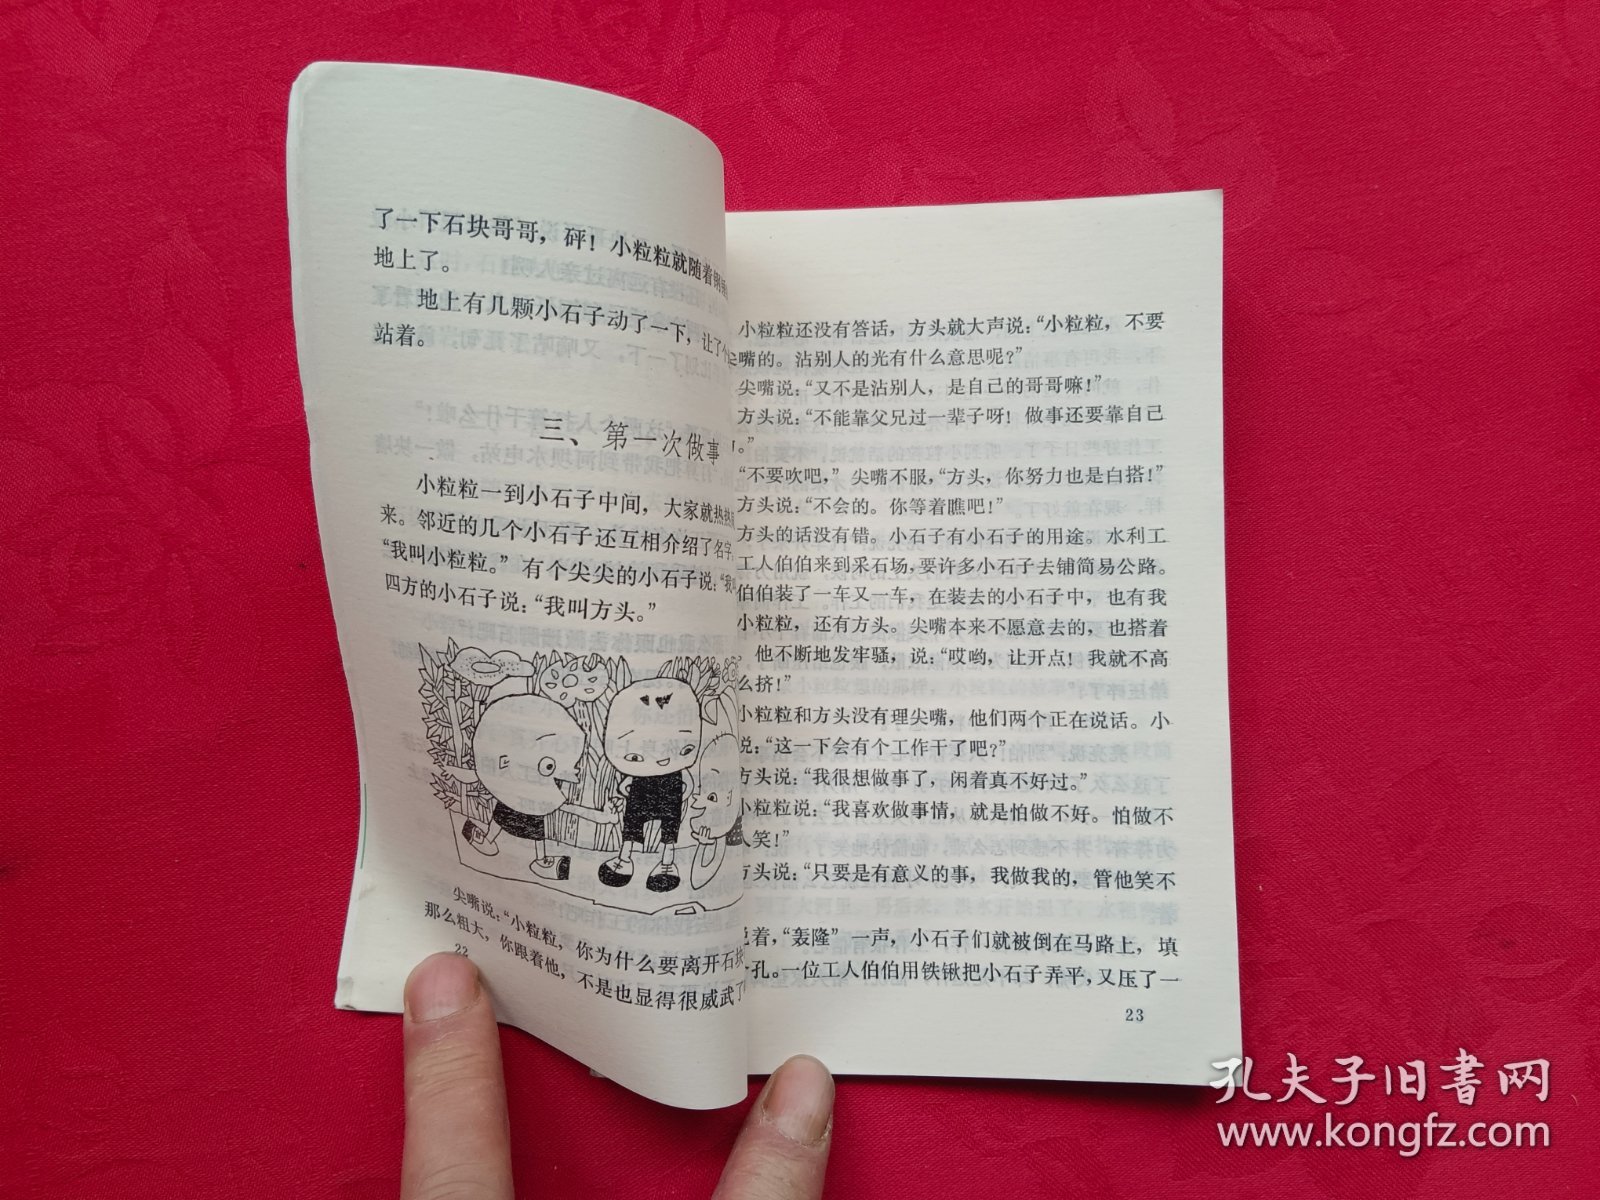 了一下石块哥哥，砰！小粒粒就随着
地上了。
地上有几颗小石子动了一下，让了个
站着。
三、第一次做事
小粒粒一到小石子中间，大家就热
来。邻近的几个小石子还互相介绍了名字，
“我叫小粒粒。”有个尖尖的小石子说：“我
四方的小石子说：“我叫方头。”
尖嘴说：“小粒粒，你为什么要离开石
那么粗大，你跟着他，不是也显得很威武了
22
小粒粒还没有答话，方头就大声说：“小粒粒，不要
嘴的。沾别人的光有什么意思呢？”
尖嘴说：“又不是沾别人，是自己的哥哥嘛！”
方头说：“不能靠父兄过一辈子呀！做事还要靠自己
。”
“不要吹吧，”尖嘴不服，“方头，你努力也是白搭！”
方头说：“不会的。你等着瞧吧！”
方头的话没有错。小石子有小石子的用途。水利工
工人伯伯来到采石场，要许多小石子去铺简易公路。
伯伯装了一车又一车，在装去的小石子中，也有我
小粒粒，还有方头。尖嘴本来不愿意去的，也搭着
。他不断地发牢骚，说：“哎哟，让开点！我就不高
么挤！”
小粒粒和方头没有理尖嘴，他们两个正在说话。小
说：“这一下会有个工作干了吧？”
方头说：“我很想做事了，闲着真不好过。”
小粒粒说：“我喜欢做事情，就是怕做不好。怕做不
人笑！”
方头说：“只要是有意义的事，我做我的，管他笑不
说着，“轰隆”一声，小石子们就被倒在马路上，填
孔。一位工人伯伯用铁锹把小石子弄平，又压了一
23
孔夫子旧书网
www.kongfz.com